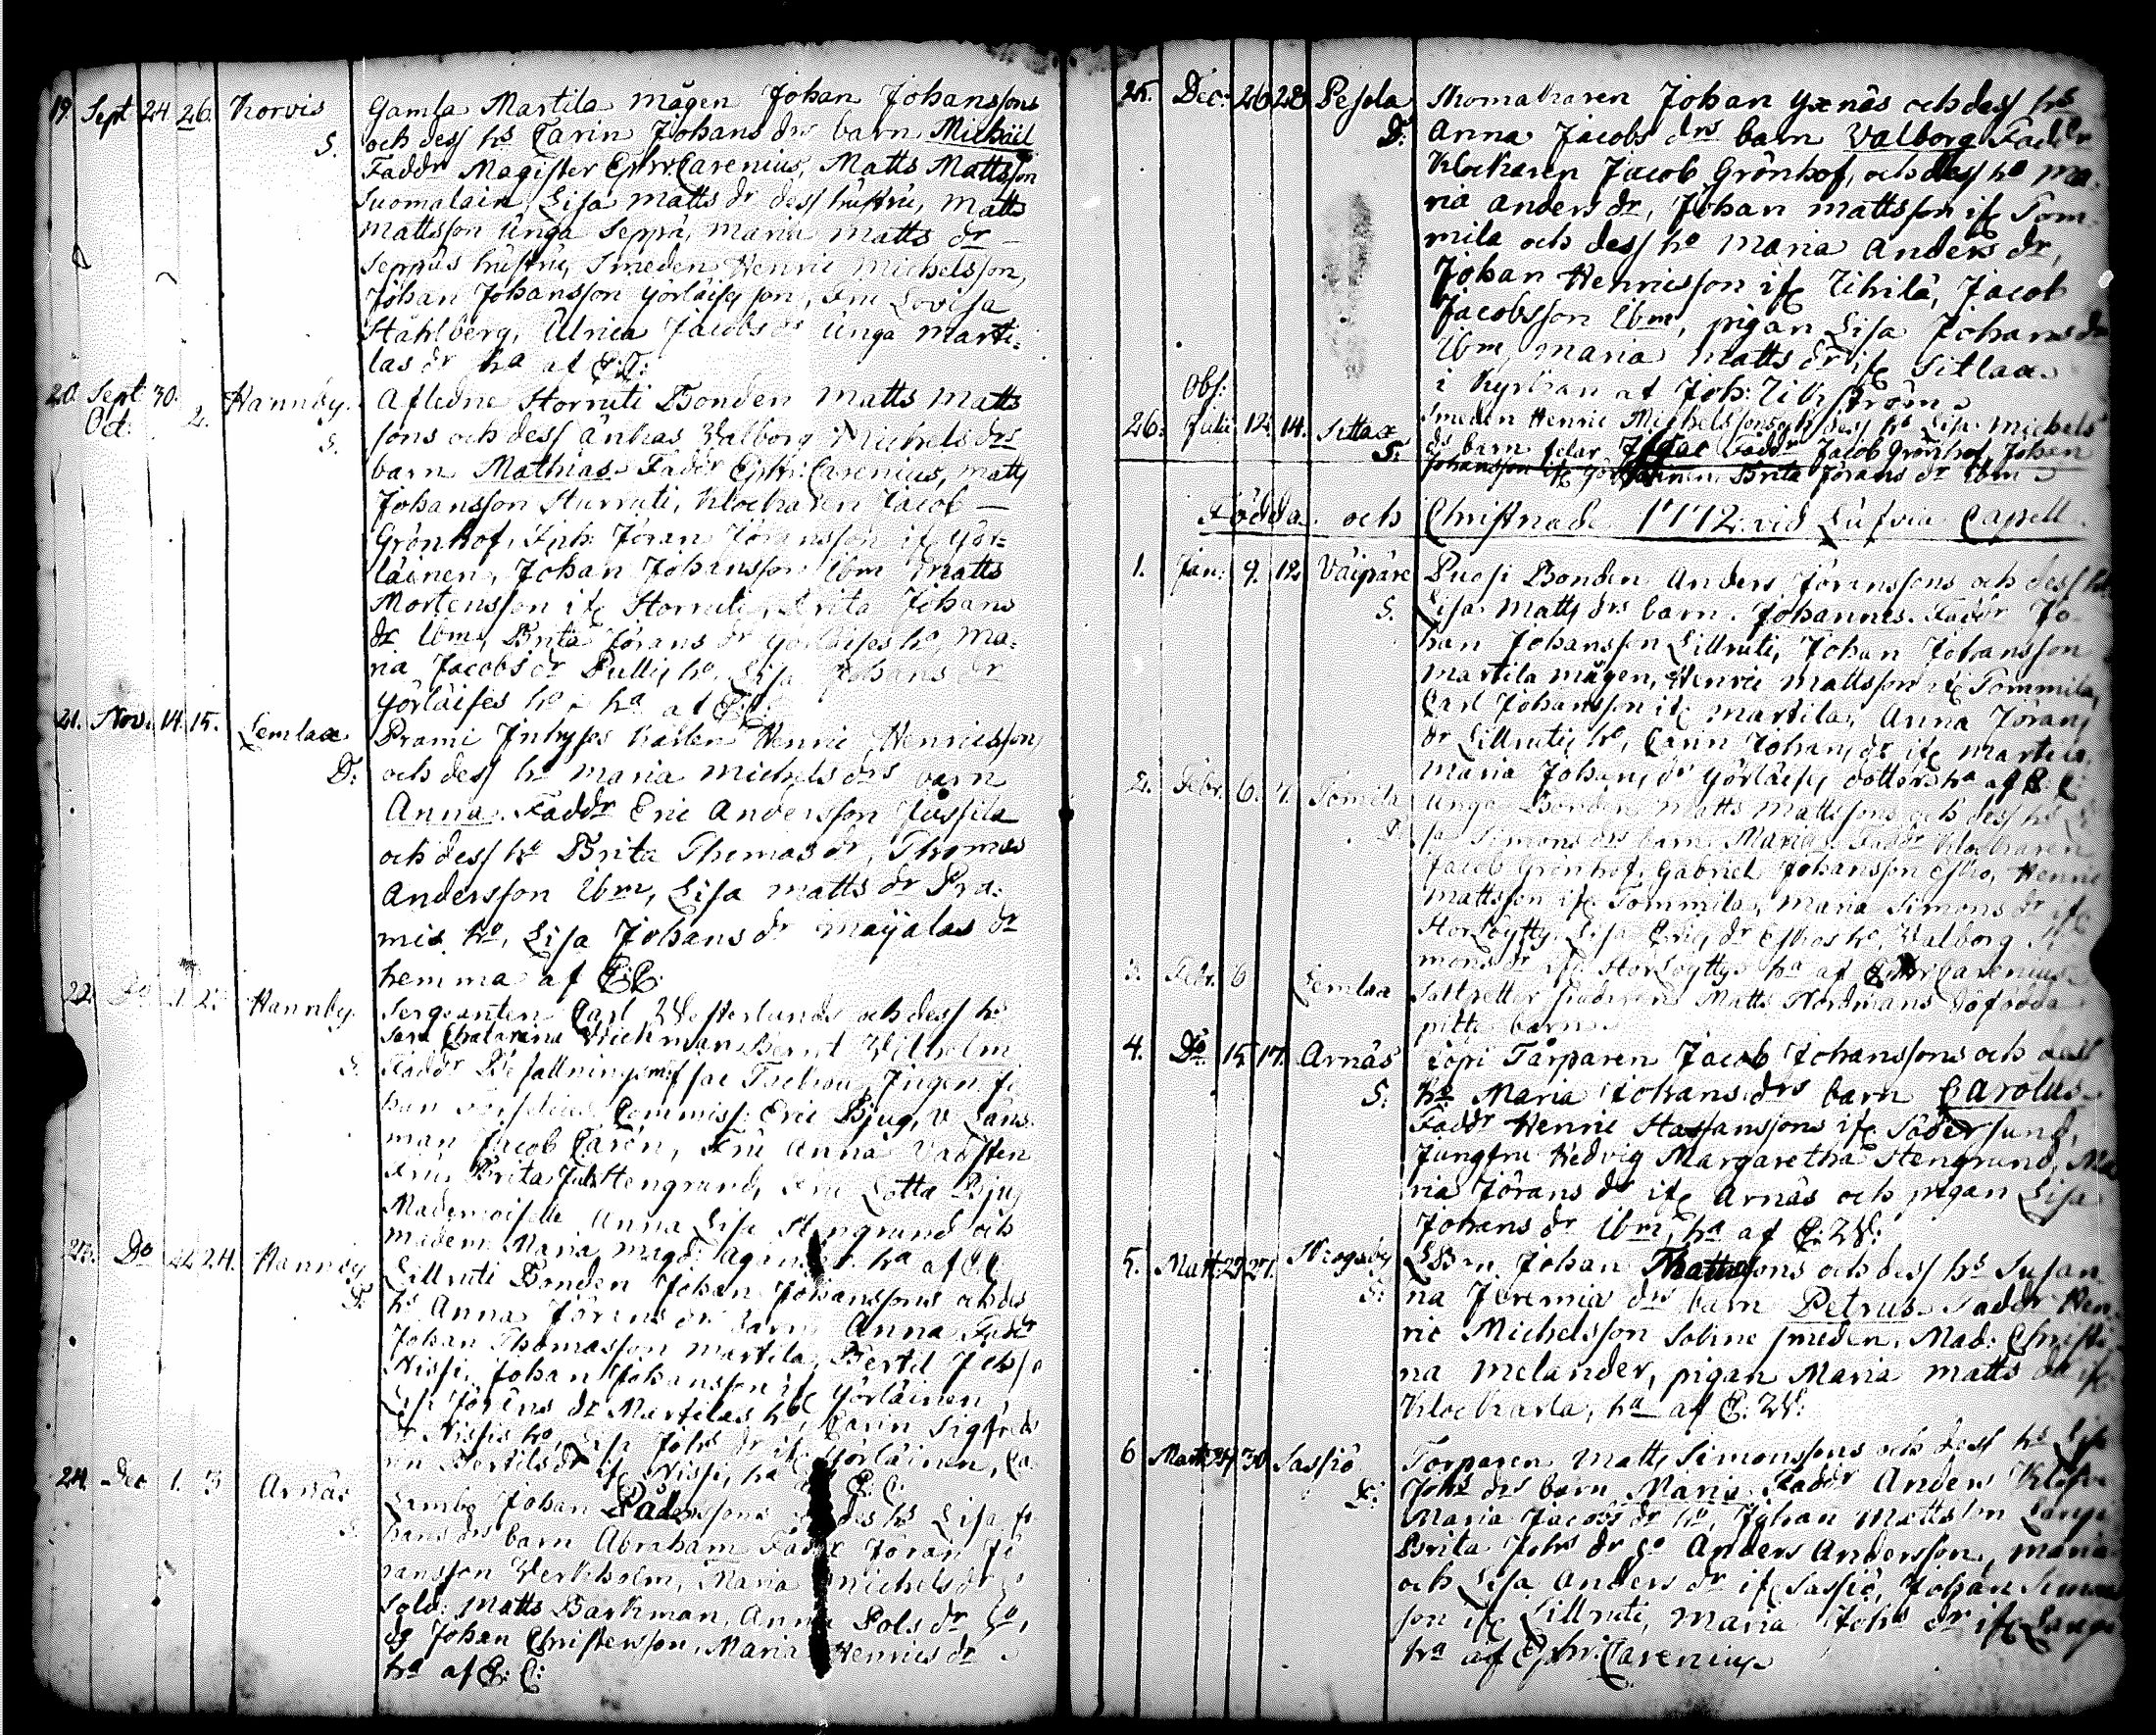 19. Sept 24. 26. Korvis Gamla Martila mågen Johan Johanssons
S. och dess hs Carin Johans drs barn Michaël
Faddr Magister Ephr. Carenius, Matts Mattsson
Suomalain, Lisa Matts dr dess hustru, Matts
Mattsson Unga Seppä, Maria Matts dr
Seppäs hustru, Smeden Henric Michelsson,
Johan Johansson Görläises son, Fru Lovisa
Ståhlberg, Ulrica Jacobs dr Unga Marti:
las dr ha af E: C:
20. Sept 30. Hannby. Afledne Storruti Bonden Matts Matts
Oct: 2.
S. sons och dess änkas Valborg Michels drs
barn Mathias. Faddr Ephr: Carenius, Matts
Johansson Sturruti, Klockaren Jacob
Grönhof, Inh: Jöran Jöransson if Gör:
läinen, Johan Johansson ibm Matts
Mortensson if Storruti, Brita Johans
dr ibm, Brita Jörans dr Görläises ho, Ma:
ria Jacobs dr Pullis ho Lisa Johans dr
Görläises ho ha af E: C:
21. Nov. 14. 15. Lemlax Prami Inhyses Karlen Henric Henricssons
D: och dess hs Maria Michels drs barn
Anna. Faddr Eric Andersson Jussila
och dess ho Brita Thomas dr, Thomas
Andersson ibm, Lisa Matts dr Pra:
mis ho, Lisa Johans dr Maijalas dr
hemma af E: C:
22. Do 2. Hannby Sergeanten Carl Westerlunds och dess hs
Sara Chatarina Wichman Bernt Vilhelm
S. Faddr Befallningsm Ingen. Jo
han Commiss: Eric Bjug, V. Läns:
man Jacob Carén, Fru Anna Vadsten
Fru Brita Jul. Stengrund, Fru Lotta Bjug
Mademoiselle Anna Lisa Stengrund och
madem: Maria Magd: ha af E: C:
23. Do 22 24. Hannby Lillruti Bonden Johan Johanssons och des
D: hs Anna Jörans dr barn Anna Faddr
Johan Thomasson Martila, Bertil Johsso
Nissi, Johan Johansson if Görläinen,
Lisa Jörans dr Martilas ho, Carin Sigfreds
dr Nissis ho, Lisa Johs dr if Görläinen, Ca
rin Bertils dr if Nissi, ha af E: C:
24. Dec 1. 3 Arnäs Lambo Johan Pålssons och des hs Lisa Jo
S. hans drs barn Abraham Faddr Jöran Jö
ransson Verkholm, Maria Michels dr
Sold: Matts Barkman, Anna Pols dr
dg Johan Christersson, Maria Henrics dr
ha af E: C:
25. Dec: 26 28 Pesola Skomakaren Johan Yxnäs och dess hs
D: Anna Jacobs drs barn Valborg Faddr
Klockaren Jacob Grönhof, och dess ho Ma:
ria Anders dr, Johan Mattsson if Tom:
mila och dess ho Maria Anders dr,
Johan Henricsson if Tihilä, Jacob
Jacobsson ibm, pigan Lisa Johans dr
ibm, Maria Matts dr if Sitlax.
i Kyrkan af Joh: Tihlström
Obs:
26. Julii 12. 14. Sittax Smeden Henric Michelssons och dess hs Lisa Michels
S: drs barn Isaac Faddr Jacob Grönhof, Johan
Johansson if Görläinen, Brita Jörans dr ibm
Födda och Christnade 1772 vid Lufvia Capell.
1. Jan: 9. 12 Väipäre Puosi Bonden Anders Jöranssons och dess hs
S. Lisa Matts drs barn. Johannes. Faddr Jo
han Johansson Lillruti, Johan Johansson
Martila mågen, Henric Mattsson if Tommila,
Carl Johansson if Martila, Anna Jörans
dr Lillrutis ho, Carin Johans dr if Martila
Maria Johans dr Görläises dotter ha af E: C:
2. Febr. 6. 7. Tomila Unga Bonden Matts Mattssons och dess hs Li
D. sa Simons drs barn Maria. Faddr Klockaren
Jacob Grönhof, Gabriel Johansson Esko, Henric
Mattsson if Tommila, Maria Simons dr if
Storlöytty, Lisa Erics dr Eskos ho, Valborg Si
mons dr if Storlöytty ha af Ephr: Carenius
3. Febr. 6 Lemlax Saltpetter siudaren Matts Nordmans döfödda
pilte barn
4. Do 15 17. Arnäs Torparen Jacob Johanssons och dess
S: hs Maria Johans drs barn Carolus.
Faddr Henric Staffanssons if Södersund,
Jungfru Hedvig Margaretha Stengrund, Ma
ria Jörans dr if Arnäs och pigan Lisa
Johans dr ibm, ha af E: W:
5. Mart: 25 27. Skogsby Johan Mattssons och dess hs Susan
S: na Jeremiæ drs barn Petrus. Faddr Hen
ric Michelsson Sabine smeden, Mad: Christi
na Melander, pigan Maria Matts dr if
Klockarla, ha af E: W:
6 Mart 29 30 Sassiö Torparen Matts Simonssons och dess hs Lisa
D: Johs drs barn Maria. Faddr Anders
Maria Jacobs dr ho, Johan Mattsson
Brita Johs dr Anders Andersson, Maria
och Lisa Anders dr if Sassiö, Johan Simons
son if Lillruti, Maria Johs dr if
ha af Ephr: Carenius